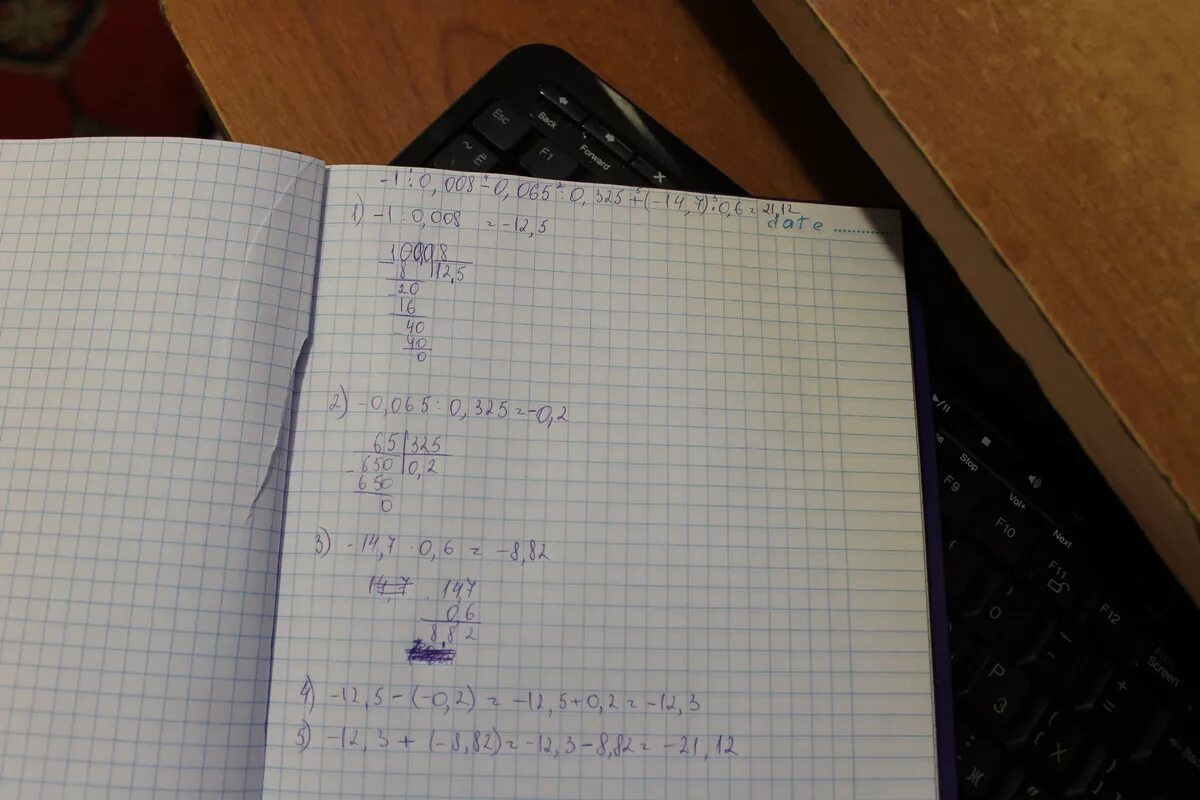 -1 : 0,008 - 0,065 : 0,325 + (-14,7) · 0,6 = 21,12
date
1) -1 : 0,008 = -12,5
10008
8 12,5
20
16
40
40
0
2) -0,065 : 0,325 = -0,2
65 325
650 0,2
650
0
3) -14,7 · 0,6 = -8,82
14,7 14,7
06
8,82
4) -12,5 - (-0,2) = -12,5 + 0,2 = -12,3
5) -12,3 + (-8,82) = -12,3 - 8,82 = -21,12
Esc
Back
Forward
~
Ё
F1
Stop
F9
Vol+
F10
Next
F11
F12
Screen
)
0
P
З
-
+
=
{
[
Х
}
]
:
;
Ж